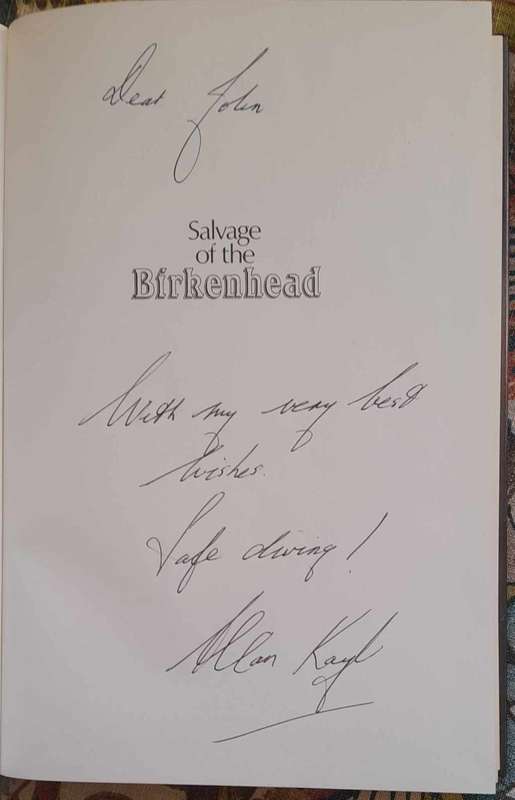 Dear John
Salvage
of the
Birkenhead
With my very best
Wishes.
Safe diving!
Allan Kayle